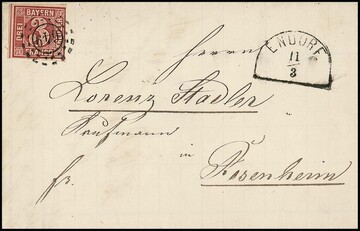 BAYERN
DREI
ENDORF
11
3
Herrn
Lorenz Stadler
Kaufmann
in
fr.
Rosenheim